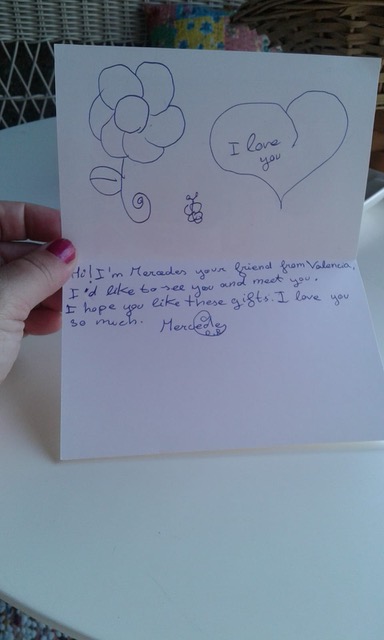 I love
you
Hi! I'm Mercedes your friend from Valencia,
I'd like to see you and meet you.
I hope you like these gifts. I love you
so much. Mercedes